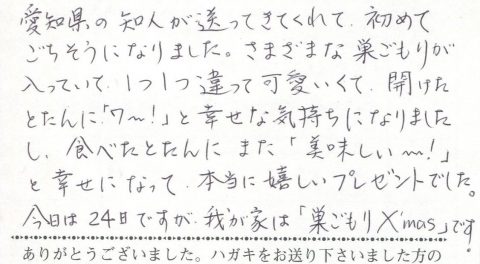 愛知県の知人が送ってきてくれて、初めて
ごちそうになりました。さまざまな巣ごもりが
入っていて、1つ1つ違って可愛いくて、開けた
とたんに「ワ〜!」と幸せな気持ちになりました
し、食べたとたんにまた「美味しい〜!」
と幸せになって、本当に嬉しいプレゼントでした。
今日は24日ですが、我が家は「巣ごもりX'mas」です。
ありがとうございました。ハガキをお送り下さいました方の